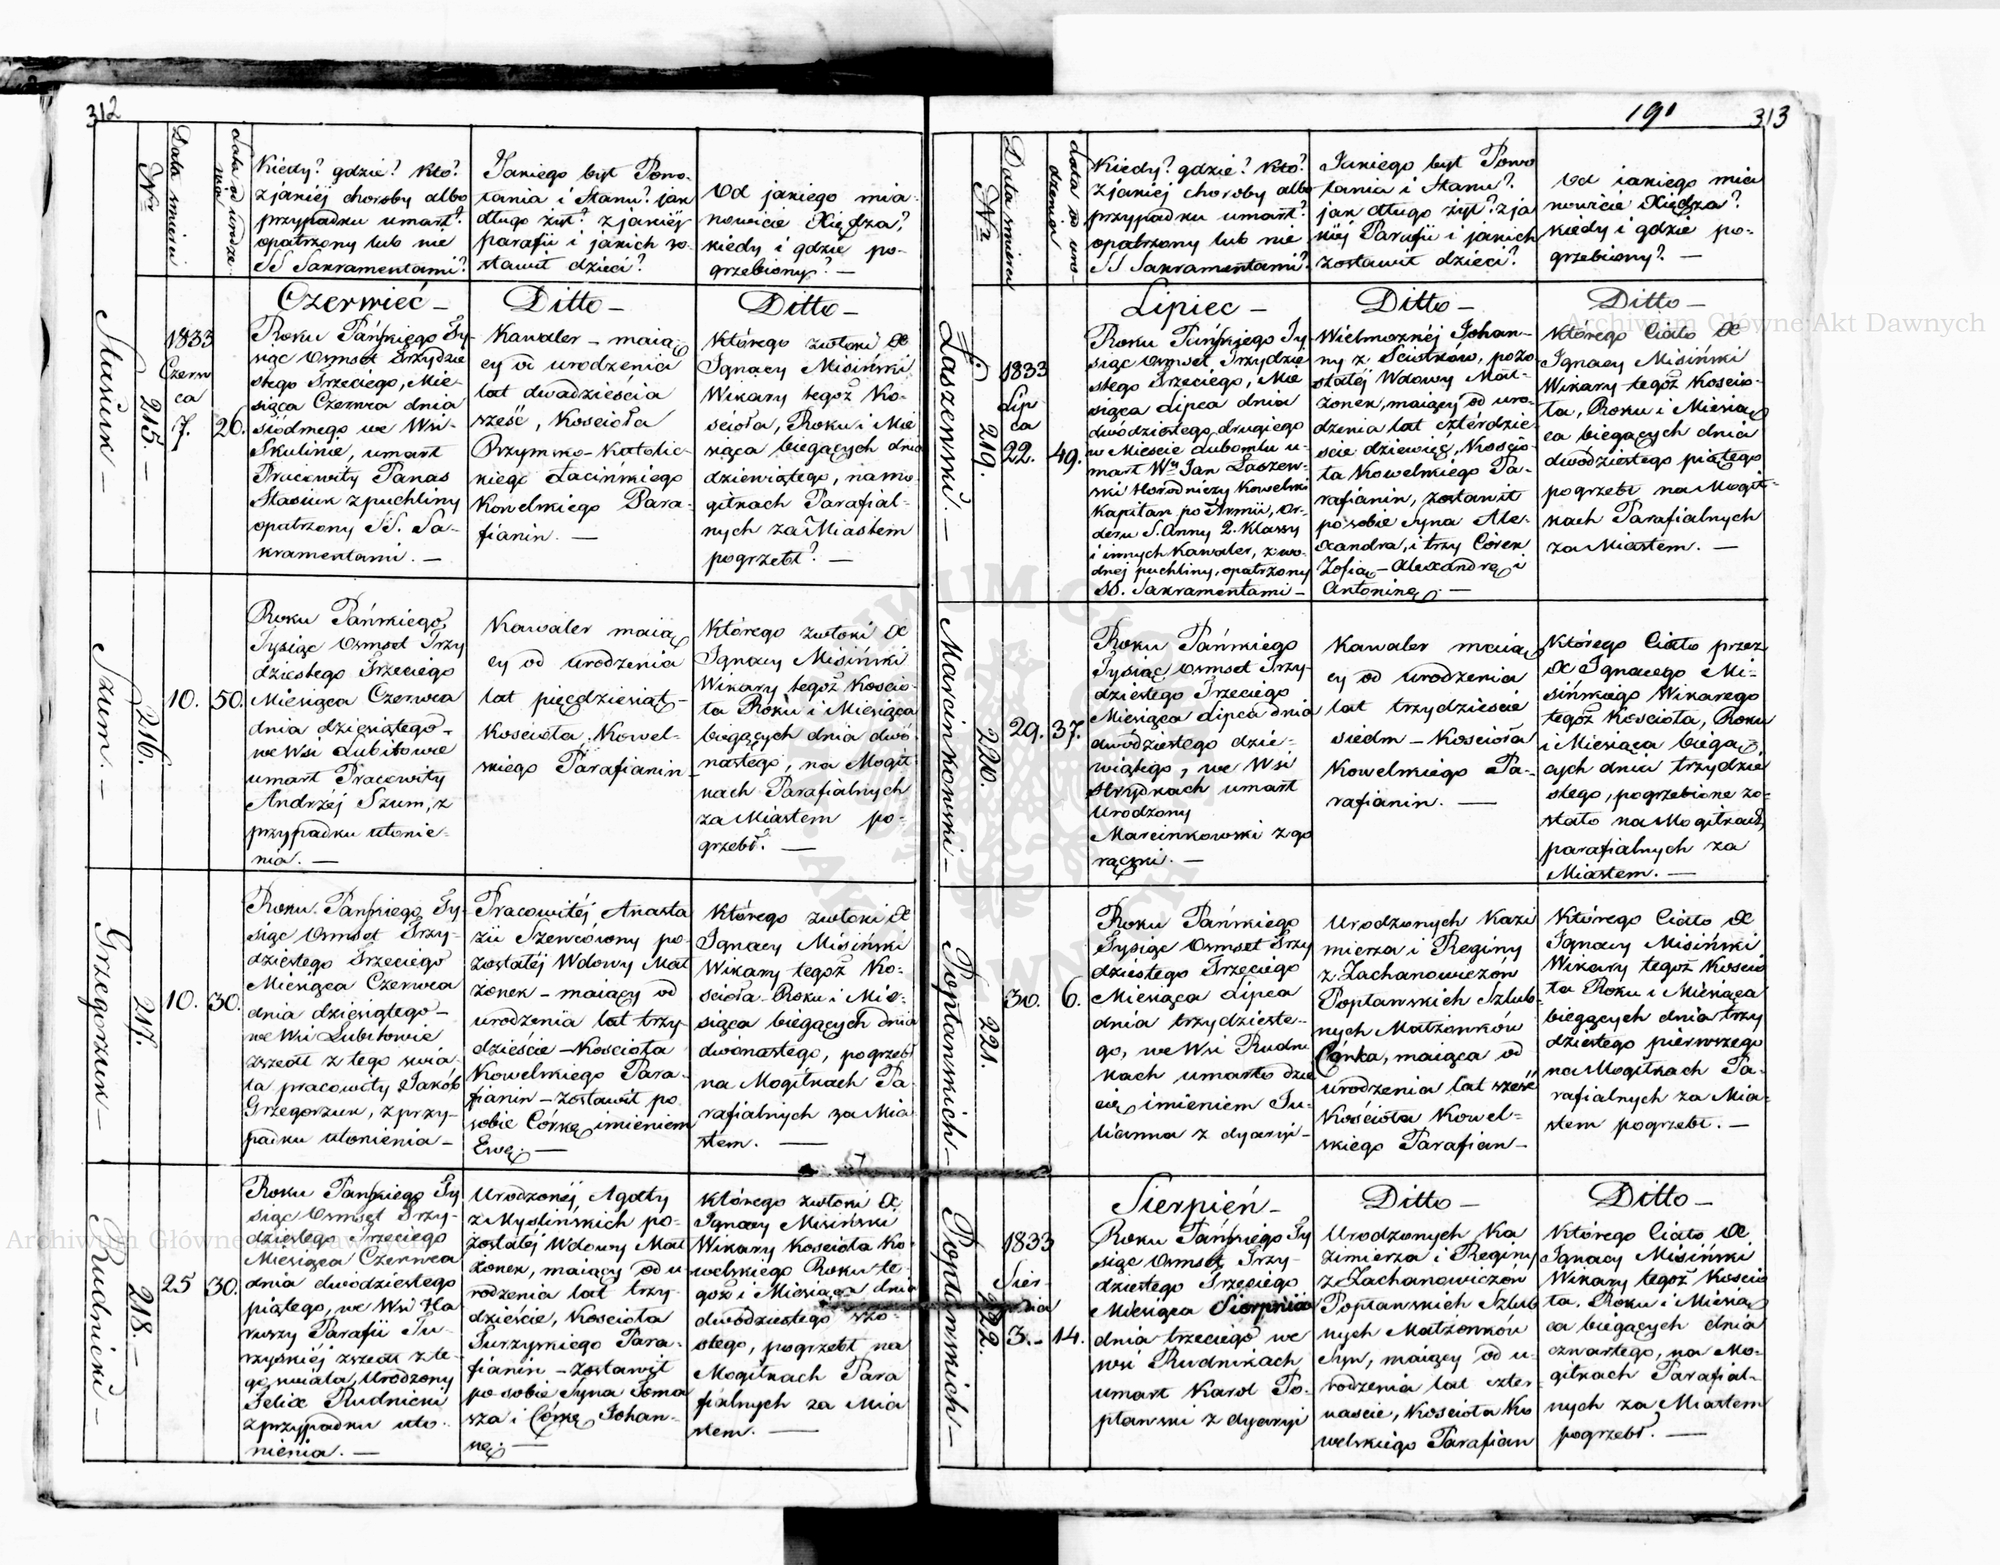 312
Nro
Data śmierci
Lata od urodze-
nia
Kiedy? gdzie? Kto?
z jakiéj choroby albo
przypadku umarł?
opatrzony lub nie
SS Sakramentami?
Jakiego był Powo-
łania i Stanu? jak
długo żył? z jakiéj
parafii i jakich zo-
stawił dzieci?
Od jakiego mia-
nowicie Xiędza?
kiedy i gdzie po-
grzebiony? —
Stasiuk —
215. —
1833
Czerw
ca
7.
26.
Czerwieć —
Roku Pańskiego Ty-
siąc Ośmset Trzydzie
stego Trzeciego, Mie-
siąca Czerwca dnia
siódmego we Wsi
Skulinie, umarł
Pracowity Panas
Stasiuk z puchliny
opatrzony SS. Sa-
kramentami. —
Ditto —
Kawaler — maią
cy od urodzenia
lat dwadzieścia
sześć, Kościoła
Rzymsko-Katolic-
kiego Łacińskiego
Kowelskiego Para-
fianin. —
Ditto —
Którego zwłoki X
Ignacy Misiński
Wikary tegoż Ko-
ścioła, Roku i Mie
siąca biegących dnia
dziewiątego, na mo-
giłkach Parafial-
nych za Miastem
pogrzebł? —
Szum. —
216.
10.
50.
Roku Pańskiego
Tysiąc Ośmset Trzy
dziestego Trzeciego
Miesiąca Czerwca
dnia dziesiątego —
we Wsi Lubitowie
umarł Pracowity
Andrzéj Szum, z
przypadku utonie-
nia. —
Kawaler maią
cy od urodzenia
lat pięćdziesiąt —
Kościoła Kowel-
skiego Parafianin —
Którego zwłoki X
Ignacy Misiński
Wikary tegoż Kościo-
ła Roku i Miesiąca
biegących dnia dwó-
nastego, na Mogił
kach Parafialnych
za Miastem po-
grzebł. —
Grzegorzuk —
217.
10.
30.
Roku Pańskiego Ty-
siąc Ośmset Trzy-
dziestego Trzeciego
Miesiąca Czerwca
dnia dziesiątego —
we Wsi Lubitowie
zszedł z tego świa-
ta pracowity Jakób
Grzegorzuk, z przy-
padku utonienia —
Pracowitéj Anasta
zii Szewcówny po-
zostałéj Wdowy Mał
żonek — maiący od
urodzenia lat trzy
dzieście — Kościoła
Kowelskiego Para-
fianin — zostawił po
sobie Córkę imieniem
Ewę. —
Którego zwłoki X
Ignacy Misiński
Wikary tegoż Ko-
ścioła Roku i Mie-
siąca biegących dnia
dwónastego, pogrzebł
na Mogiłkach Pa-
rafialnych za Mia
stem. —
Rudnicki —
218. —
25
30.
Roku Pańskiego Ty
siąc Ośmset Trzy-
dziestego Trzeciego
Miesiąca Czerwca
dnia dwódziestego
piątego, we Wsi Ha
ruszy Parafii Tu-
rzyskiéj zszedł z te-
go świata, Urodzony
Felix Rudnicki
z przypadku uto-
nienia. —
Urodzonéj Agaty
z Myslińskich po-
zostałéj Wdowy Mał
żonek, maiący od u
rodzenia lat trzy-
dzieście, Kościoła
Turzyskiego Para-
fianin — zostawił
po sobie Syna Toma
sza i Córkę Johan-
nę. —
Którego zwłoki X
Ignacy Misiński
Wikary Kościoła Ko-
welskiego Roku te-
goż i Miesiąca dnia
dwódziestego szó-
stego, pogrzebł na
Mogiłkach Para
fialnych za Mia
stem. —
191
313
Nro
Data śmierci
Lata od uro-
dzenia
Kiedy? gdzie? Kto?
z jakiéj choroby albo
przypadku umarł?
opatrzony lub nie
SS Sakramentami?
Jakiego był Powo
łania i Stanu?
jak długo żył? z ja
kiéj Parafii i jakich
zostawił dzieci?
Od jakiego mia
nowicie Xiędza?
kiedy i gdzie po-
grzebiony? —
Łaszewski. —
219.
1833
Lip
ca
22.
49.
Lipiec —
Roku Pańskiego Ty
siąc Ośmset Trzydzie
stego Trzeciego, Mie
siąca Lipca dnia
dwódziestego drugiego
w Mieście Lubomlu u-
marł Wy Jan Łaszew-
ski Horodniczy Kowelski
Kapitan po Armii, Or-
deru S. Anny 2. Klassy
i innych Kawaler, z wo-
dnéj puchliny, opatrzony
SS. Sakramentami —
Ditto —
Wielmożnéj Johan-
ny z Scistków, pozo
stałéj Wdowy Mał-
żonek, maiący od uro-
dzenia lat czterdzie
ście dziewięć, Kościo
ła Kowelskiego Pa-
rafianin, zostawił
po sobie Syna Ale-
xandra, i trzy Córek
Zofią — Alexandrę i
Antoninę. —
Ditto —
Którego Ciało X
Ignacy Misiński
Wikary tegoż Kościo-
ła, Roku i Miesią
ca biegących dnia
dwódziestego piątego
pogrzebł na Mogił-
kach Parafialnych
za Miastem. —
Marcinkowski —
220.
29.
37.
Roku Pańskiego
Tysiąc Ośmset Trzy-
dziestego Trzeciego
Miesiąca Lipca dnia
dwódziestego dzie-
wiątego, we Wsi
umarł
Urodzony
Marcinkowski z go
rączki. —
Kawaler maią
cy od urodzenia
lat trzydzieście
siedm — Kościoła
Kowelskiego Pa-
rafianin. —
Którego Ciało przez
X Ignacego Mi-
sińskiego Wikarego
tegoż Kościoła, Roku
i Miesiąca biegą
cych dnia trzydzie
stego, pogrzebione zo-
stało na Mogiłkach
parafialnych za
Miastem. —
Popławskich —
221.
30.
6.
Roku Pańskiego
Tysiąc Ośmset Trzy
dziestego Trzeciego
Miesiąca Lipca
dnia trzydzieste-
go, we Wsi Rudni
kach umarło dzie
cię imieniem Ju-
lianna z dyaryi —
Urodzonych Kazi
mierza i Reginy
z Zachanowiczów
Popławskich Szlub-
nych Małżonków
Córka, maiąca od
urodzenia lat sześć
Kościoła Kowel-
skiego Parafian —
Którego Ciało X
Ignacy Misiński
Wikary tegoż Kościo
ła Roku i Miesiąca
biegących dnia trzy
dziestego pierwszego
na Mogiłkach Pa-
rafialnych za Mia-
stem pogrzebł. —
Popławskich —
222
1833
Sier-
pnia
3. —
14.
Sierpień —
Roku Pańskiego Ty
siąc Ośmset Trzy-
dziestego Trzeciego
Miesiąca Sierpnia
dnia trzeciego we
wsi Rudnikach
umarł Karol Po-
pławski z dyaryi
Ditto —
Urodzonych Ka
zimierza i Reginy
z Zachanowiczów
Popławskich Szlub
nych Małżonków
Syn, maiący od u-
rodzenia lat czter-
naście, Kościoła Ko
welskiego Parafian
Ditto —
Którego Ciało X.
Ignacy Misiński
Wikary tegoż Kościo
ła. Roku i Miesią
ca biegących dnia
czwartego, na Mo-
giłkach Parafial-
nych za Miastem
pogrzebł. —
Archiwum Główne Akt Dawnych
Archiwum Główne Akt Dawnych